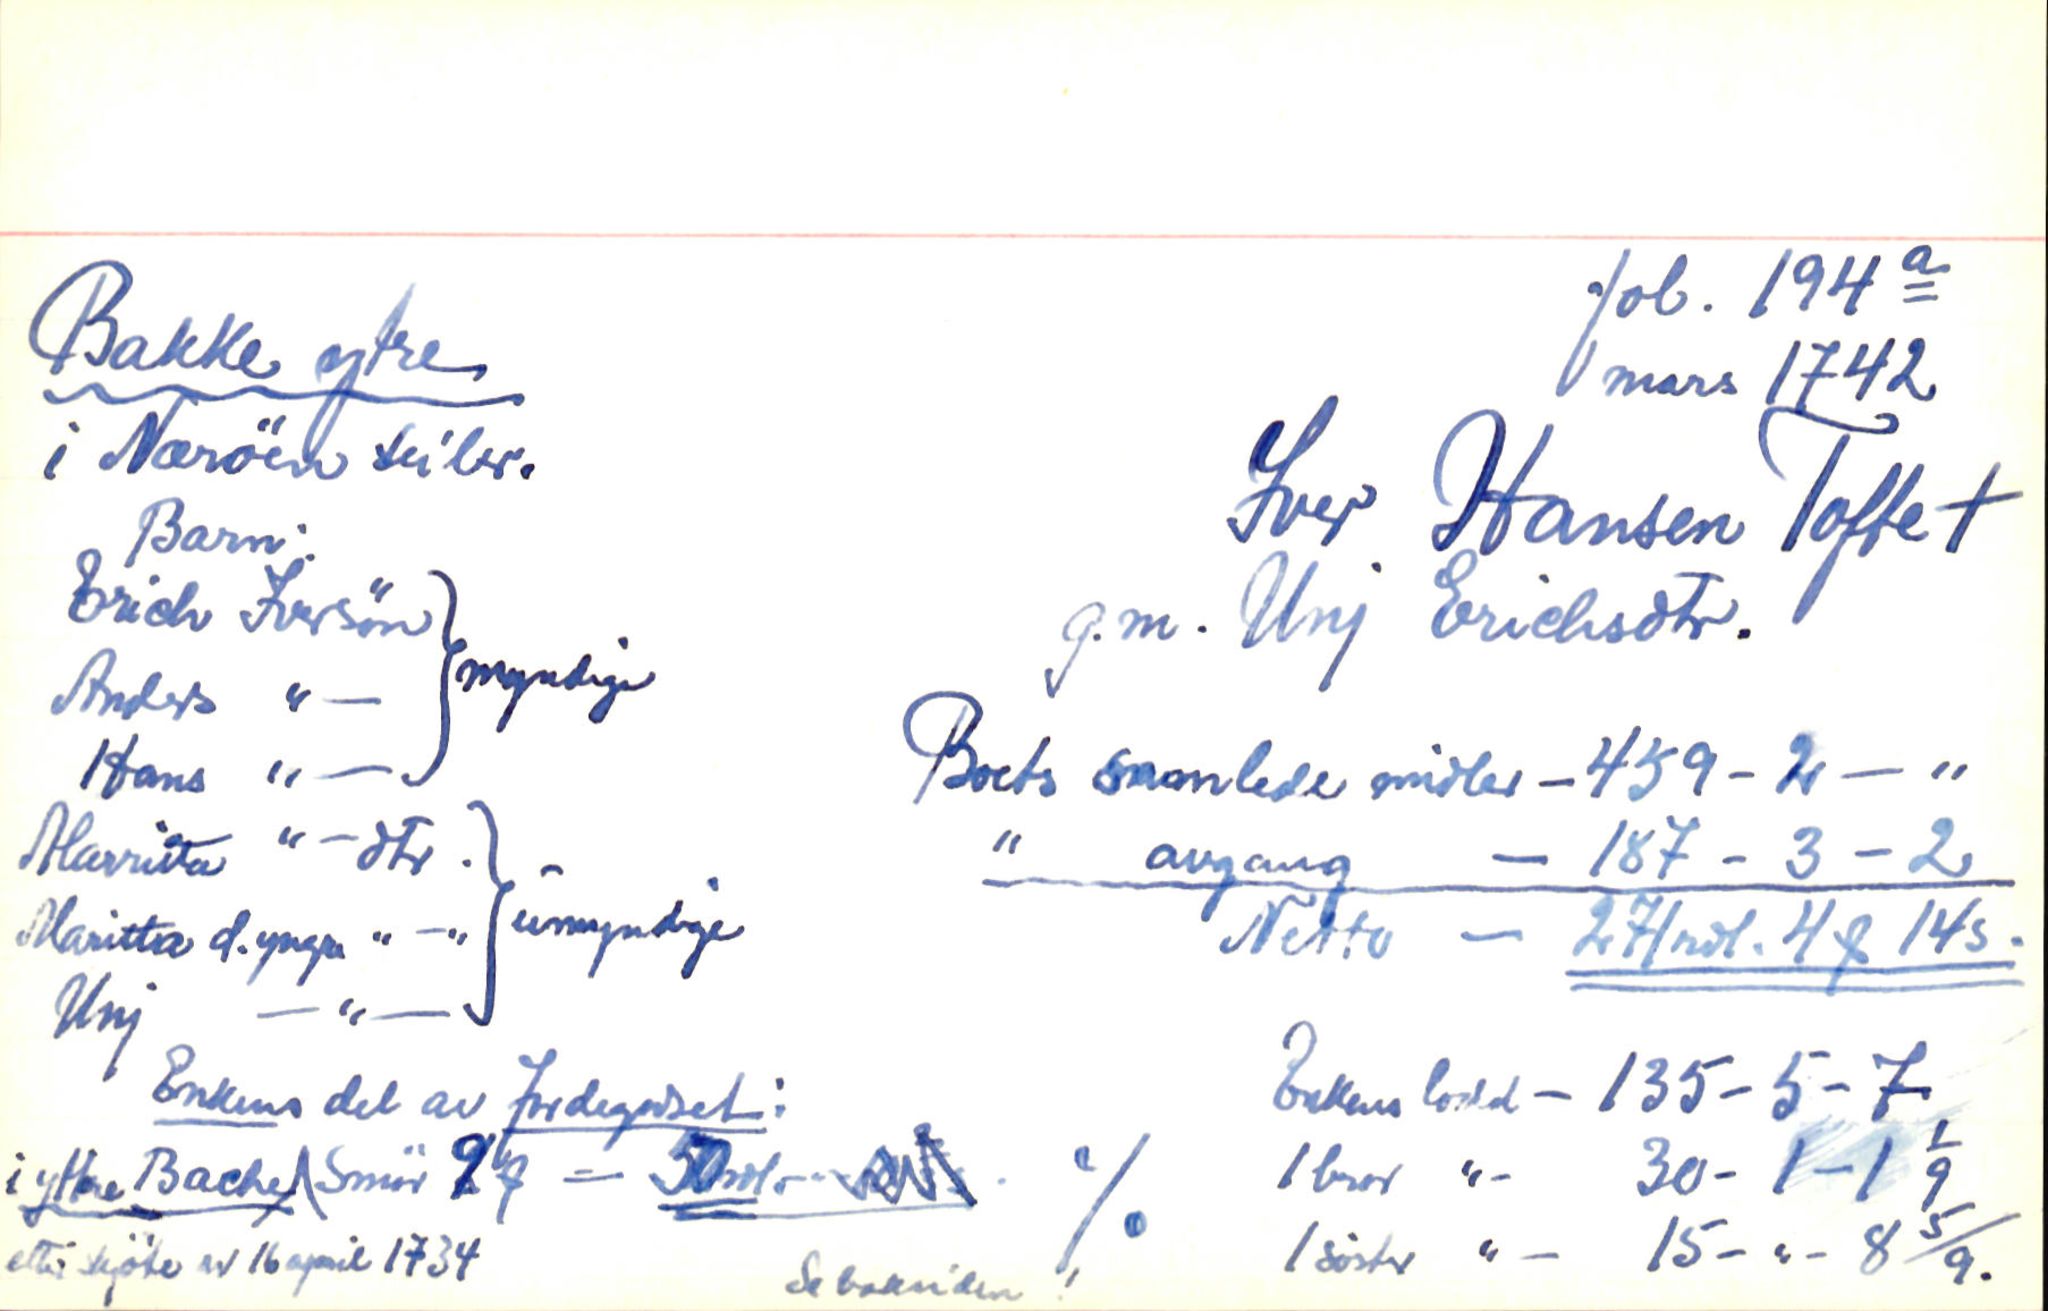 fol. 194 a
mars 1742
Bakke ytre
i Næröen
Iver Hansen Toffte †
g.m. Unj Erichsdtr.
Barn:
Erich Iversön } myndige
Anders " —
Hans " —
Marritta " — dtr. } ümyndige
Maritta d. yngre " — "
Unj — " —
Boets samlede midler — 459 - 2 — "
" avgang — 187 - 3 - 2
Netto — 271 rdl. 4 14 s.
Enkens lodd — 135 - 5 - 7
1 bror " - 30 - 1 - 1 1/9
1 söster " — 15 - " - 8 5/9.
Enkens del av Jordegodset:
i yttre Bache Smör = 50 rdl. %
etter skjöte av 16 april 1734
Se baksiden!